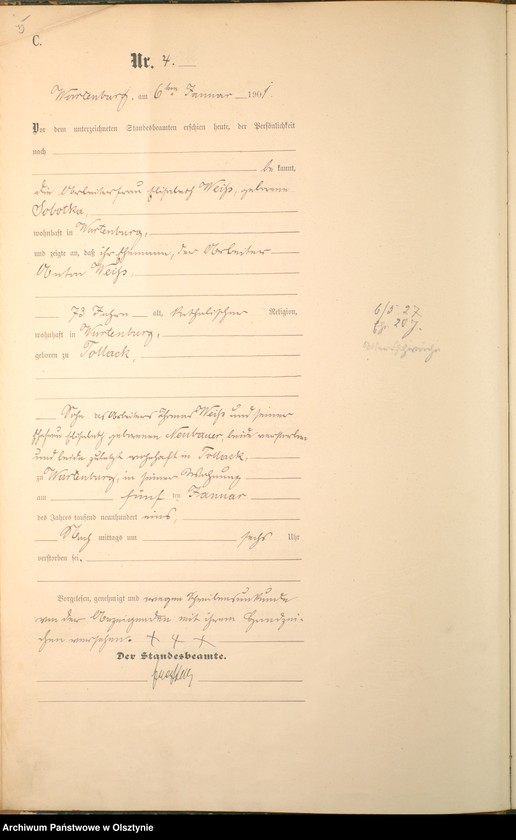 5
C.
Nr. 4.
Wartenburg, am 6ten Januar 1901.
Vor dem unterzeichneten Standesbeamten erschien heute, der Persönlichkeit
nach
be kannt,
die Arbeiterfrau Elisabeth Weiß, geborene
Sobotka,
wohnhaft in Wartenburg,
und zeigte an, daß ihr Ehemann, der Arbeiter
Anton Weiß,
73 Jahre alt, katholischer Religion,
wohnhaft in Wartenburg,
geboren zu Tollack,
Sohn des Arbeiters Thomas Weiß und seiner
Ehefrau Elisabeth geborenen Neubauer, beide verstorben
und beide zuletzt wohnhaft in Tollack,
zu Wartenburg, in seiner Wohnung
am fünf ten Januar
des Jahres tausend neunhundert eins,
Nach mittags um sechs Uhr
verstorben sei.
Vorgelesen, genehmigt und wegen Schreibensunkunde
von der Anzeigenden mit ihrem Handzei-
chen versehen. + + +
Der Standesbeamte.
6/5 27
Altersschwäche
Archiwum Państwowe w Olsztynie